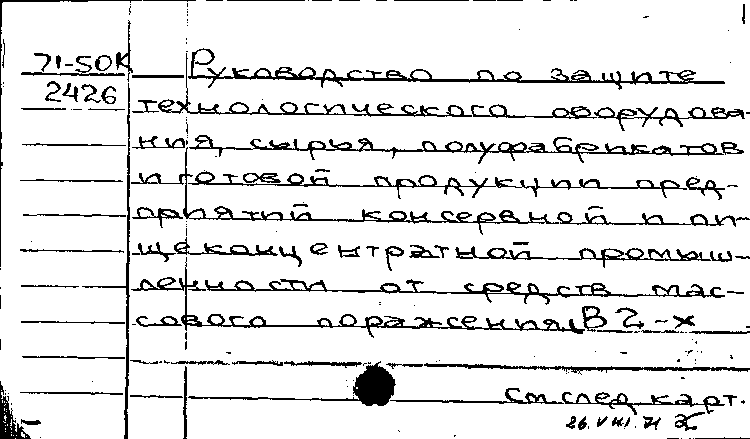 71-50К Руководство по защите
2426 технологического оборудова-
ния, сырья, полуфабрикатов
и готовой продукции пред-
приятий консервной и пи-
щеконцентратной промыш-
ленности от средств мас-
сового поражения. В 2-х
См. след. карт.
26.VIII.71